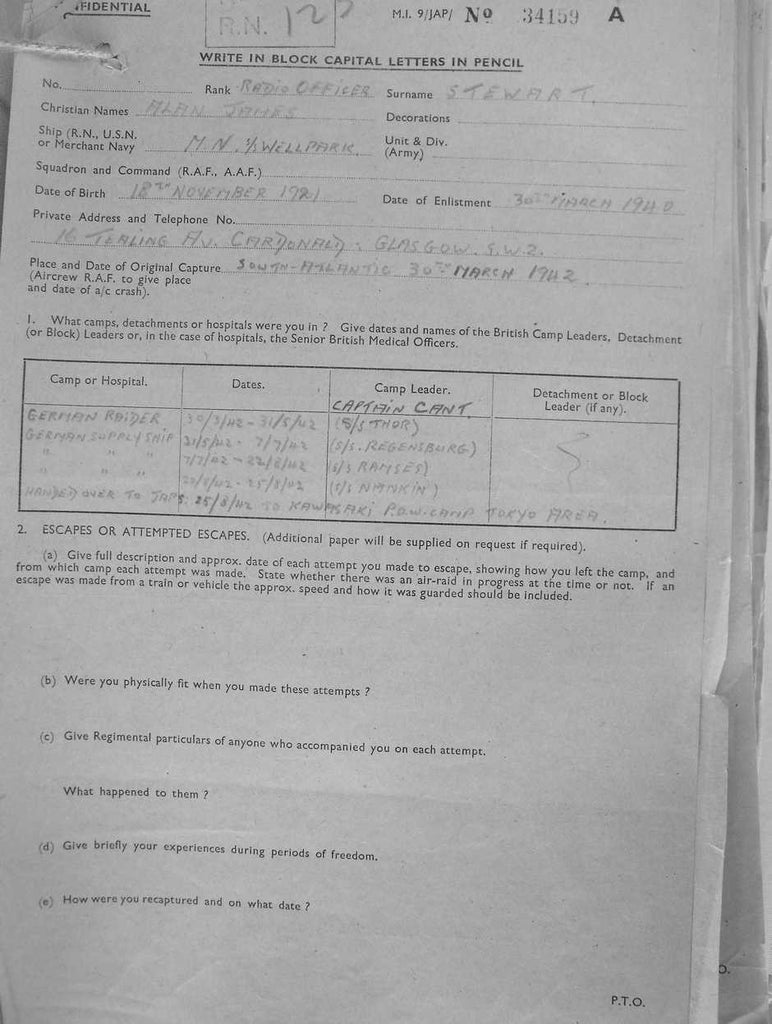 FIDENTIAL
R.N. 127
M.I. 9/JAP/ No 34159 A
WRITE IN BLOCK CAPITAL LETTERS IN PENCIL
No. Rank RADIO OFFICER Surname STEWART.
Christian Names ALAN JAMES Decorations
Ship (R.N., U.S.N. or Merchant Navy M.N. S/S WELLPARK. Unit & Div. (Army)
Squadron and Command (R.A.F., A.A.F.)
Date of Birth 18TH NOVEMBER 1921 Date of Enlistment 30TH MARCH 1940
Private Address and Telephone No.
16 TEALING AV. CARDONALD. GLASGOW. S.W.2.
Place and Date of Original Capture SOUTH-ATLANTIC 30TH MARCH 1942.
(Aircrew R.A.F. to give place
and date of a/c crash).
1. What camps, detachments or hospitals were you in ? Give dates and names of the British Camp Leaders, Detachment
(or Block) Leaders or, in the case of hospitals, the Senior British Medical Officers.
Camp or Hospital. Dates. Camp Leader. Detachment or Block
Leader (if any).
CAPTAIN CANT.
GERMAN RAIDER 30/3/42 - 31/5/42 (S/S THOR)
GERMAN SUPPLY SHIP 31/5/42 - 7/7/42 (S/S. REGENSBURG)
" " 7/7/42 - 22/8/42 (S/S RAMSES)
" " - 25/8/42 (S/S NANKIN)
HANDED OVER TO JAPS: 25/8/42 TO KAWASAKI P.O.W. CAMP TOKYO AREA.
2. ESCAPES OR ATTEMPTED ESCAPES. (Additional paper will be supplied on request if required).
(a) Give full description and approx. date of each attempt you made to escape, showing how you left the camp, and
from which camp each attempt was made. State whether there was an air-raid in progress at the time or not. If an
escape was made from a train or vehicle the approx. speed and how it was guarded should be included.
(b) Were you physically fit when you made these attempts ?
(c) Give Regimental particulars of anyone who accompanied you on each attempt.
What happened to them ?
(d) Give briefly your experiences during periods of freedom.
(e) How were you recaptured and on what date ?
P.T.O.